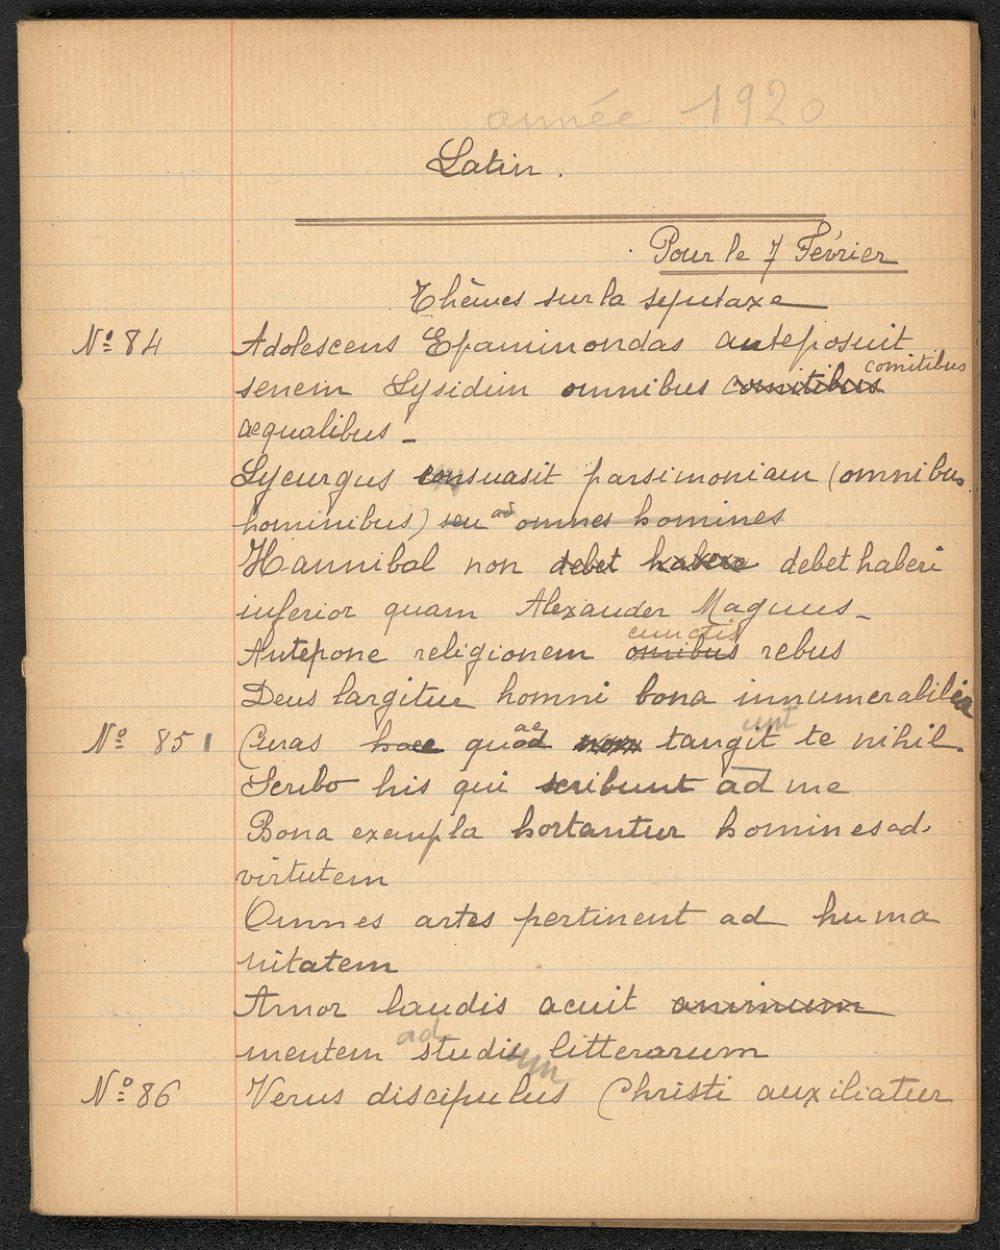 année 1920
Latin.
Pour le 7 Février
Thèmes sur la syntaxe
Nº 84 Adolescens Epaminondas anteposuit
comitibus
senem Lysidim omnibus comitibus
æqualibus -
Lycurgus consuasit parsimoniam (omnibus
hominibus) seu ad omnes homines
Hannibal non debet habere debet haberi
inferior quam Alexander Magnus -
cunctis
Antepone religionem omnibus rebus
Deus largitur homni bona innumerabilia
ae unt
Nº 85 Curas haec quod non tangit te nihil.
Scribo his qui scribunt ad me
Bona exempla hortantur homines ad
virtutem
Omnes artes pertinent ad huma
nitatem
Amor laudis acuit animum
ad um
mentem studii litterarum
Nº 86 Verus discipulus Christi auxiliatur